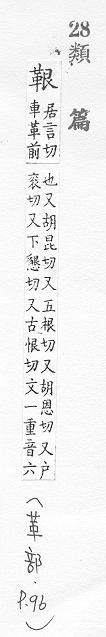 28類篇
鞎
居言切
車革前
也又胡昆切又五根切又胡恩切又户
袞切又下懇切又古恨切文一重音六
(革部. p.96)